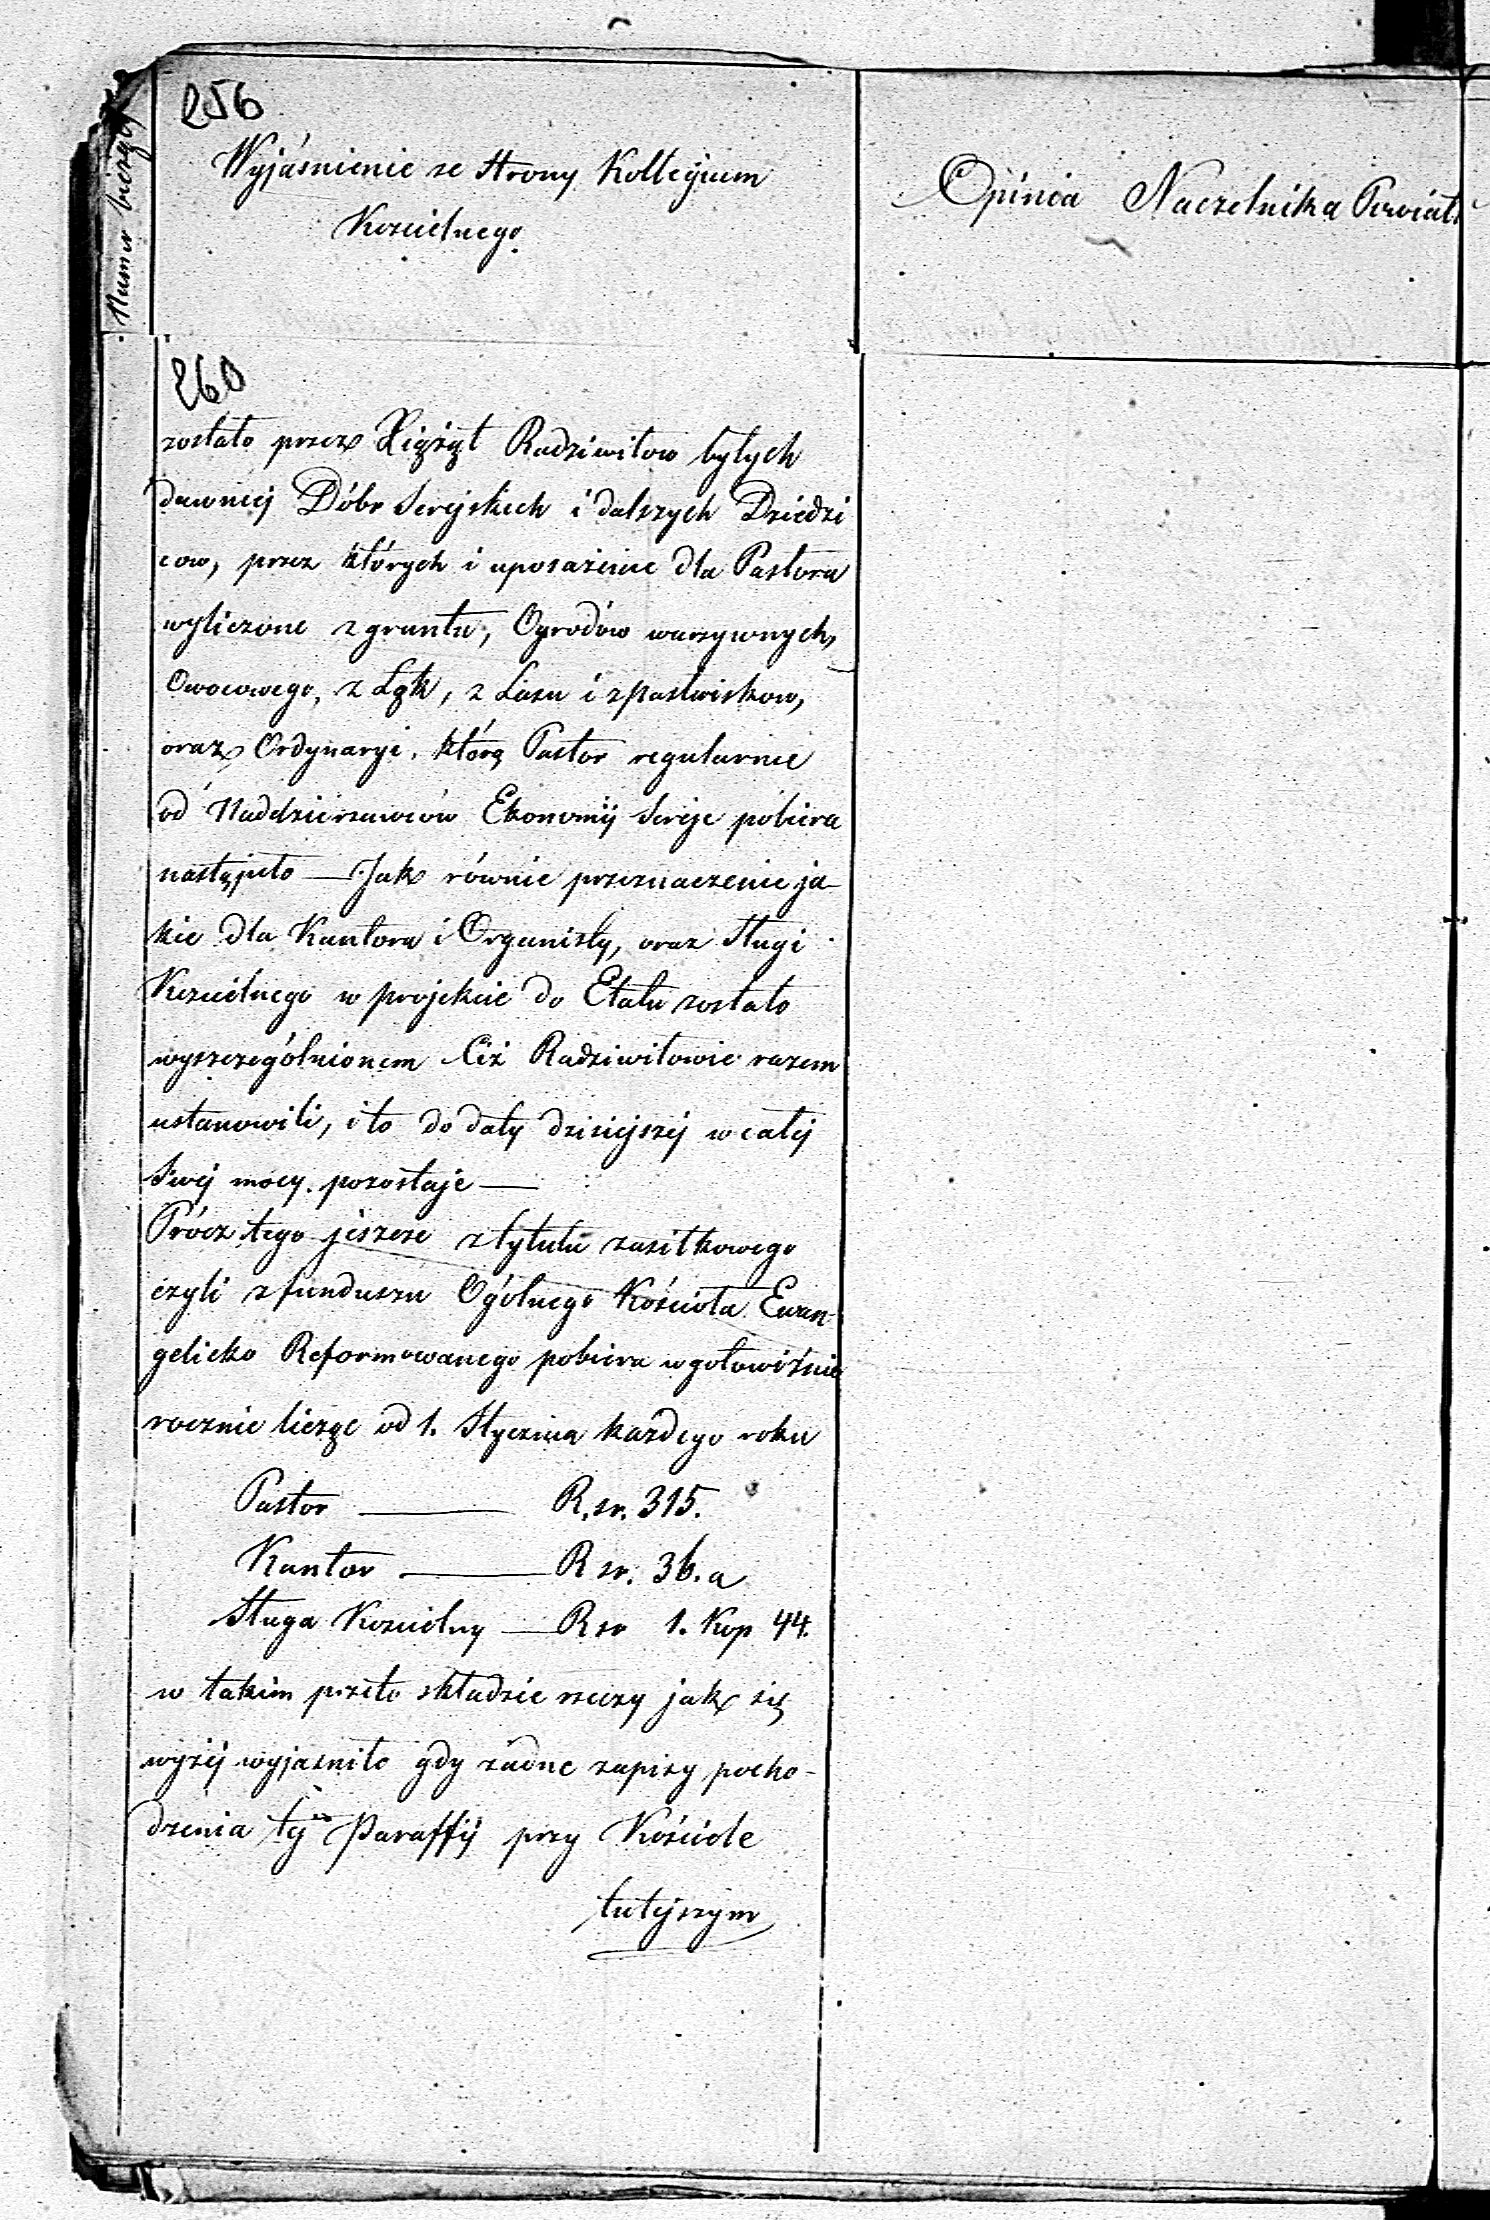 256
Numer bieżący
Wyjáśnienie ze Strony Kollegium
Koscielnego
Opinia Naczelnika Powiatu
260
zostało przez Xiążąt Radziwiłow byłych
dawniej Dóbr Serejskich i dalszych Dziedzi
cow, przez których i uposażenie dla Pastora
wyliczone z gruntu, Ogrodów warzywnych,
Owocowego, z Łąk, z Lasu i z pastwiskow,
oraz Ordynaryi, którą Pastor regularnie
od Naddzierzawców Ekonomij Sereje pobiera
nastąpiło — Jak równie przeznaczenie ja-
kie dla Kantora i Organisty, oraz Sługi
Koscielnego w projekcie do Etatu zostało
wyszczególnionem Ciż Radziwiłowie razem
ustanowili, i to do daty dzisiejszej w całej
Swej mocy pozostaje —
Prócz tego jeszcze z tytułu zasiłkowego
czyli z funduszu Ogólnego Kościoła Ewan-
gelicko Reformowanego pobiera w gotowiźnie
rocznie licząc od 1. Stycznia każdego roku
Pastor — R. sr. 315.
Kantor — R sr. 36. a
Sługa Koscielny — R sr 1. Kop 44.
w takim przeto składzie rzeczy jak się
wyżej wyjasniło gdy żadne zapisy pocho-
dzenia tej Paraffij przy Kościele
tutejszym